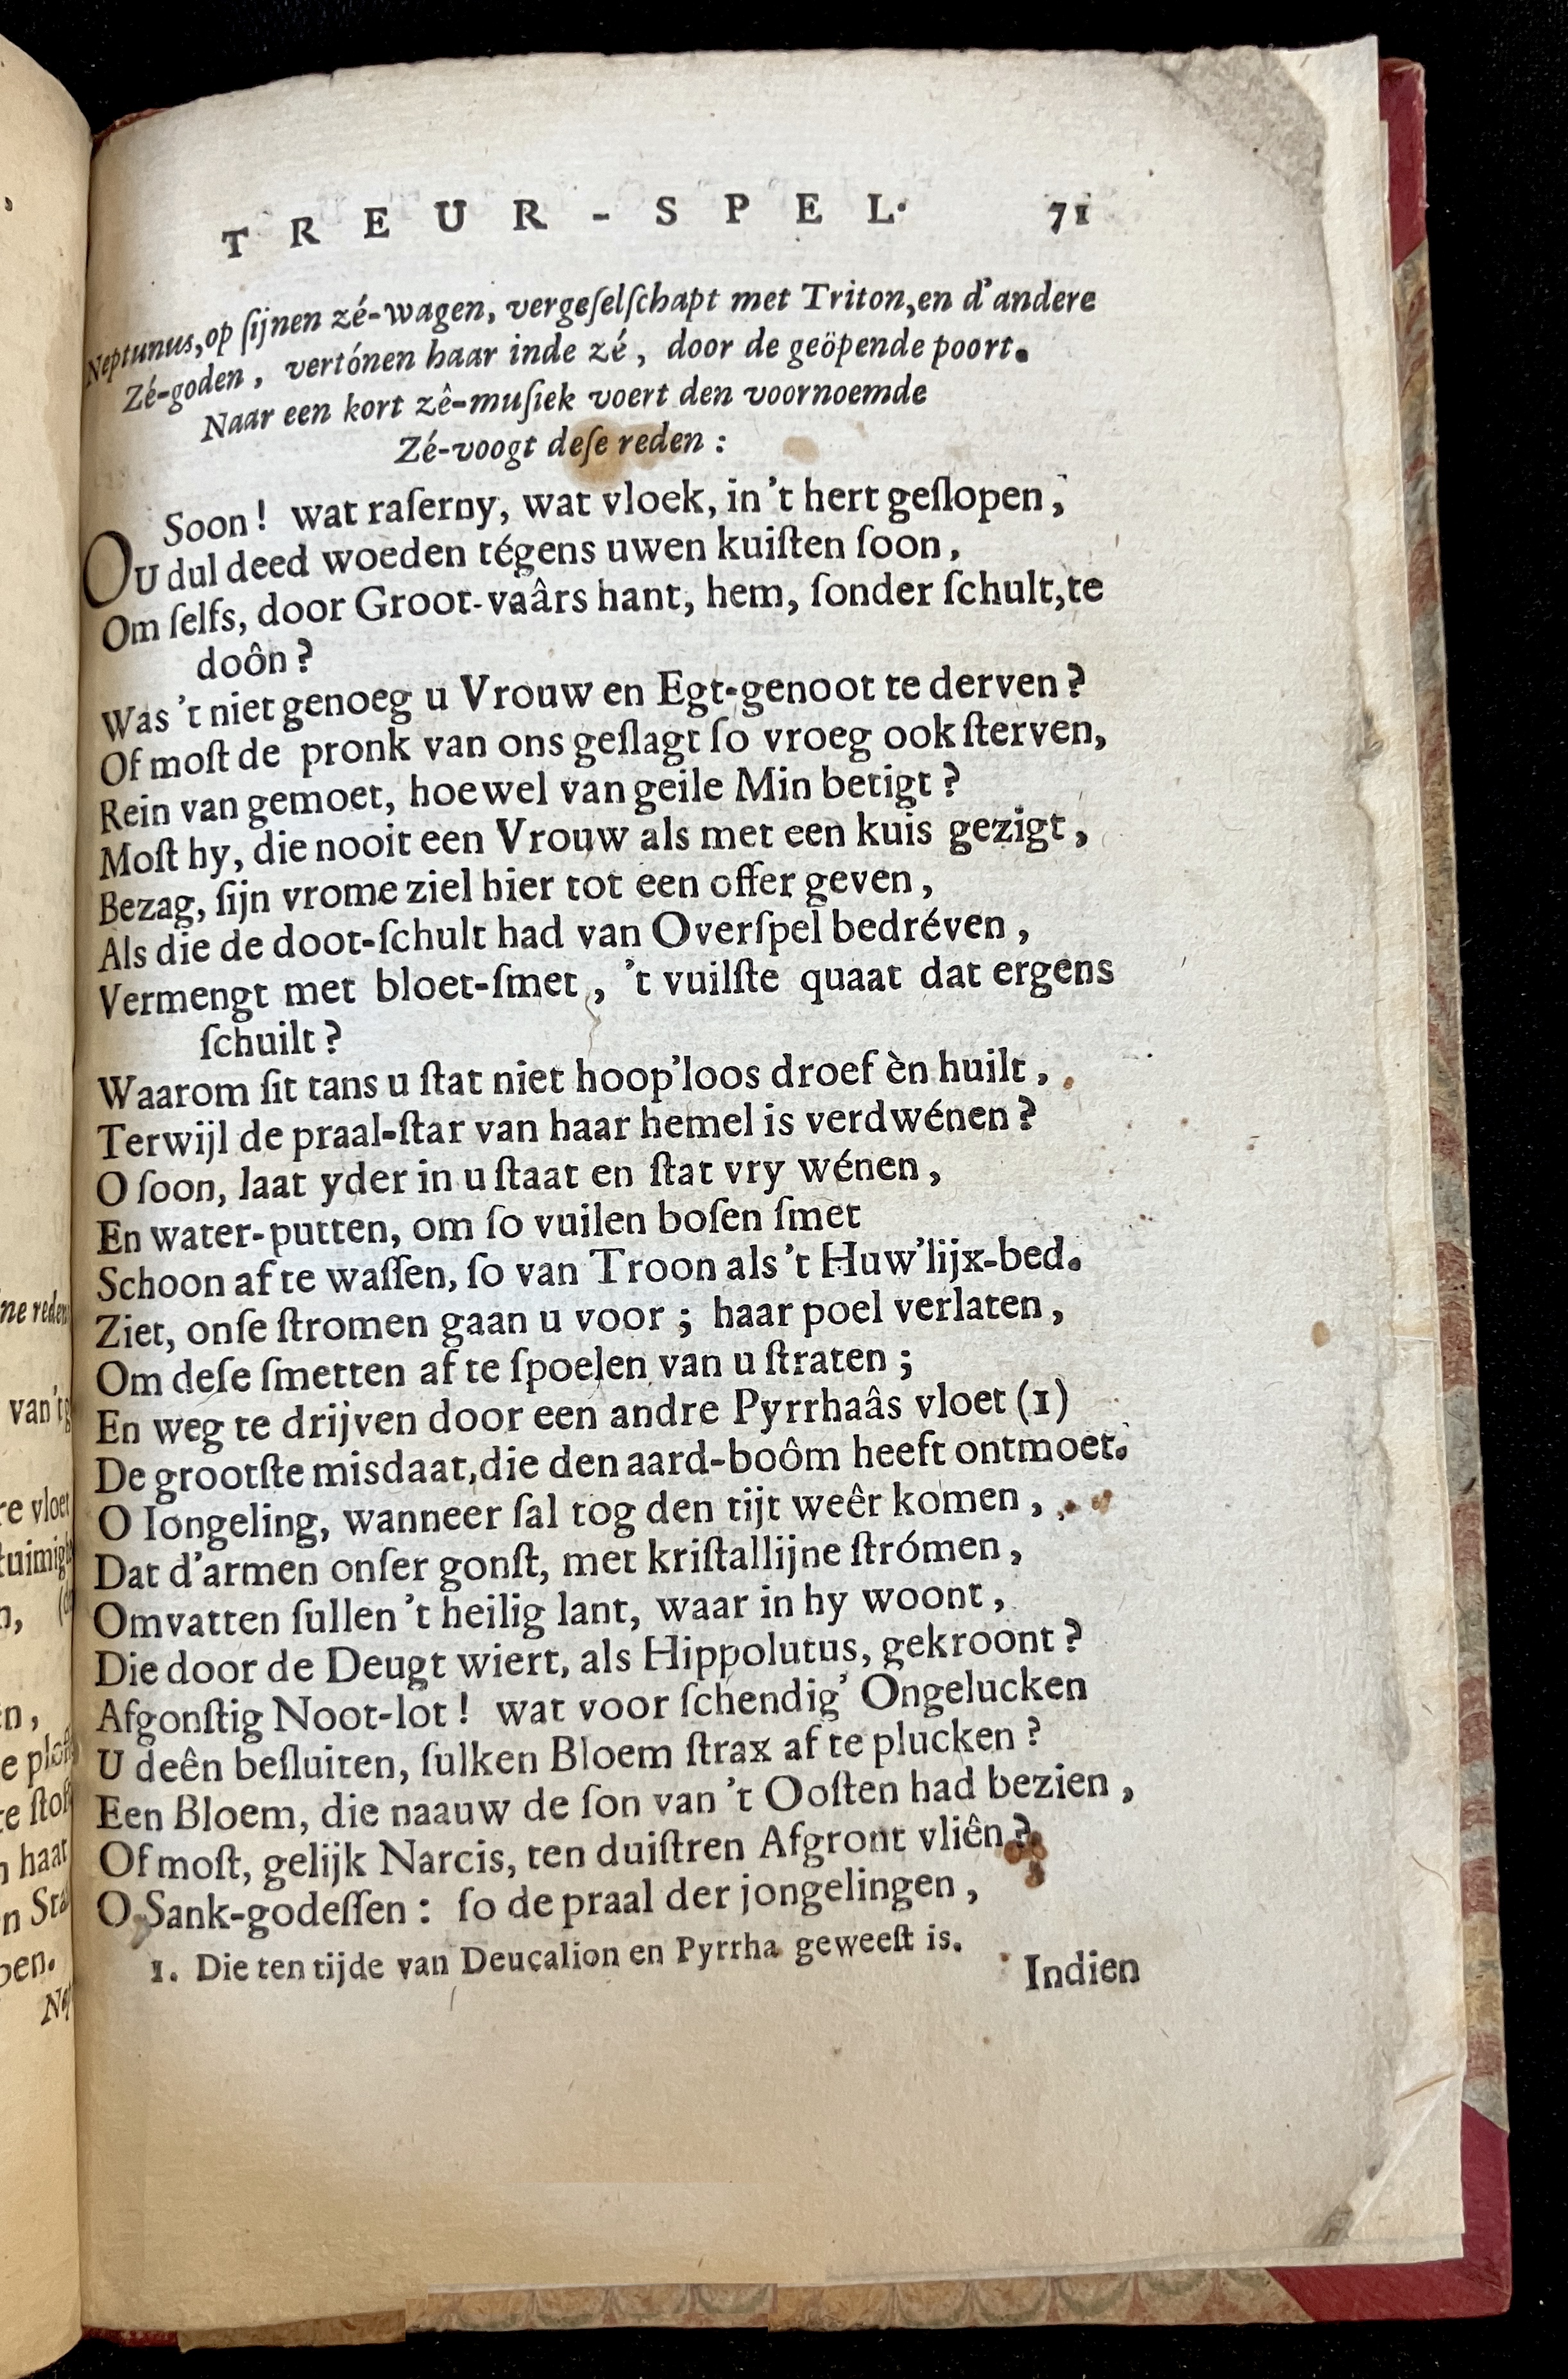 TREUR-SPEL. 71
Neptunus, op ſijnen zé-wagen, vergeſelſchapt met Triton, en d'andere
Zé-goden, vertónen haar inde zé, door de geöpende poort.
Naar een kort zê-muſiek voert den voornoemde
Zé-voogt deſe reden:
O Soon! wat raſerny, wat vloek, in 't hert geſlopen,
U dul deed woeden tégens uwen kuiſten ſoon,
Om ſelfs, door Groot-vaârs hant, hem, ſonder ſchult, te
doôn?
Was 't niet genoeg u Vrouw en Egt-genoot te derven?
Of moſt de pronk van ons geſlagt ſo vroeg ook ſterven,
Rein van gemoet, hoewel van geile Min betigt?
Moſt hy, die nooit een Vrouw als met een kuis gezigt,
Bezag, ſijn vrome ziel hier tot een offer geven,
Als die de doot-ſchult had van Overſpel bedréven,
Vermengt met bloet-ſmet, 't vuilſte quaat dat ergens
ſchuilt?
Waarom ſit tans u ſtat niet hoop'loos droef èn huilt,
Terwijl de praal-ſtar van haar hemel is verdwénen?
O ſoon, laat yder in u ſtaat en ſtat vry wénen,
En water-putten, om ſo vuilen boſen ſmet
Schoon af te waſſen, ſo van Troon als 't Huw'lijx-bed.
Ziet, onſe ſtromen gaan u voor; haar poel verlaten,
Om deſe ſmetten af te ſpoelen van u ſtraten;
En weg te drijven door een andre Pyrrhaâs vloet (1)
De grootſte misdaat, die den aard-boôm heeft ontmoet.
O Iongeling, wanneer ſal tog den tijt weêr komen,
Dat d'armen onſer gonſt, met kriſtallijne ſtrómen,
Omvatten ſullen 't heilig lant, waar in hy woont,
Die door de Deugt wiert, als Hippolutus, gekroont?
Afgonſtig Noot-lot! wat voor ſchendig' Ongelucken
U deên beſluiten, ſulken Bloem ſtrax af te plucken?
Een Bloem, die naauw de ſon van 't Ooſten had bezien,
Of moſt, gelijk Narcis, ten duiſtren Afgront vliên?
O Sank-godeſſen: ſo de praal der jongelingen,
1. Die ten tijde van Deucalion en Pyrrha geweeſt is.
Indien